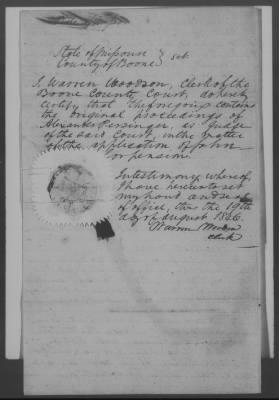 State of Missouri } sct
County of Boone
I, Warren Woodson, Clerk of the
Boone County Court, do hereby
certify that the foregoing contains
the original proceedings of
Alexander Persinger, as Judge
of the said Court, in the matter
of the application of John
for pension.
In testimony whereof,
I have hereunto set
my hand and seal
of office, this the 19th
day of August 1846.
Warren Woodson
Clerk